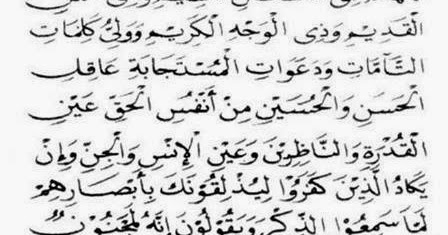 الْقَدِيْمِ وَذِى الْوَجْهِ الْكَرِيْمِ وَوَلِيِّ كَلِمَاتِ
التَّآمَّاتِ وَدَعَوَاتِ الْمُسْتَجَابَةِ عَاقِلِ
الْحَسَنِ وَالْحُسَيْنِ مِنْ أَنْفُسِ الْحَقِّ عَيْنِ
الْقُدْرَةِ وَالنَّاظِرِيْنَ وَعَيْنِ الْإِنْسِ وَالْجِنِّ وَإِنْ
يَكَادُ الَّذِيْنَ كَفَرُوْا لَيُذْلِقُوْنَكَ بِأَبْصَارِهِمْ
لَمَّا سَمِعُوا الذِّكْرَ وَيَقُوْلُوْنَ إِنَّهُ لَمَجْنُوْنٌ